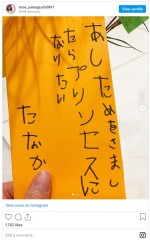 moe_yamaguchi0601
View profile
あしためをさまし
たらプリンセスに
なりたい
たなか
View more on Instagram
1,752 likes
Add a comment...